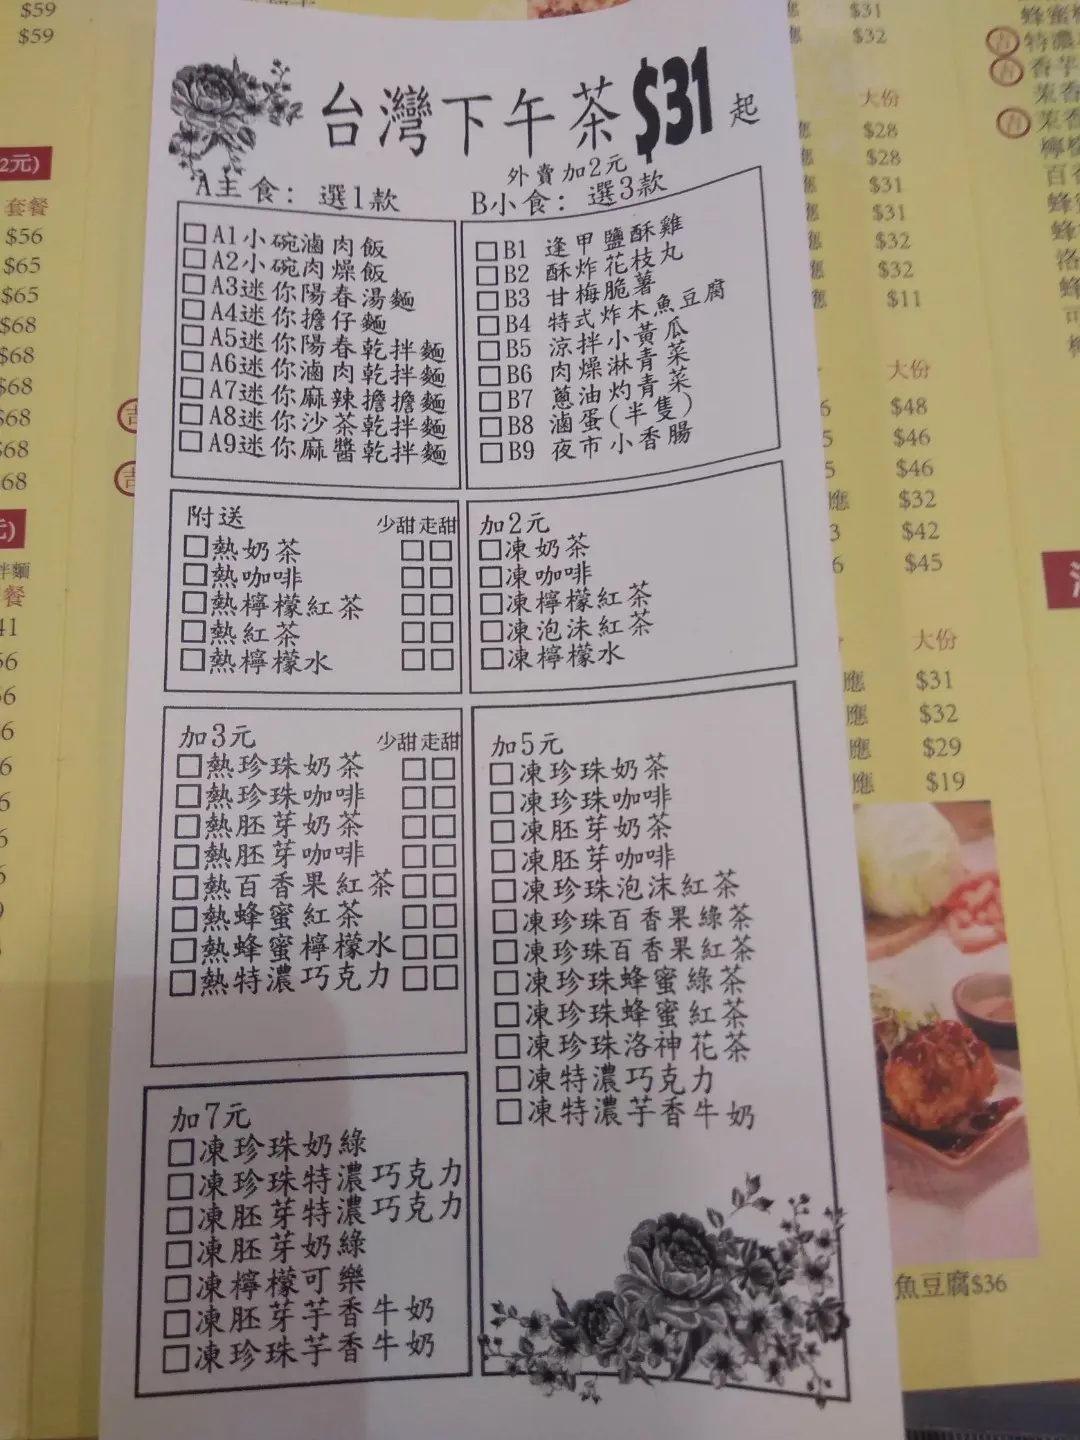 台灣下午茶$31起
外賣加2元
A主食：選1款
A1小碗滷肉飯
A2小碗肉燥飯
A3迷你陽春湯麵
A4迷你擔仔麵
A5迷你陽春乾拌麵
A6迷你滷肉乾拌麵
A7迷你麻辣擔擔麵
A8迷你沙茶乾拌麵
A9迷你麻醬乾拌麵
B小食：選3款
B1 逢甲鹽酥雞
B2 酥炸花枝丸
B3 甘梅脆薯
B4 特式炸木魚豆腐
B5 涼拌小黃瓜
B6 肉燥淋青菜
B7 蔥油灼青菜
B8 滷蛋(半隻)
B9 夜市小香腸
附送 少甜 走甜
熱奶茶
熱咖啡
熱檸檬紅茶
熱紅茶
熱檸檬水
加2元
凍奶茶
凍咖啡
凍檸檬紅茶
凍泡沫紅茶
凍檸檬水
加3元 少甜 走甜
熱珍珠奶茶
熱珍珠咖啡
熱胚芽奶茶
熱胚芽咖啡
熱百香果紅茶
熱蜂蜜紅茶
熱蜂蜜檸檬水
熱特濃巧克力
加5元
凍珍珠奶茶
凍珍珠咖啡
凍胚芽奶茶
凍胚芽咖啡
凍珍珠泡沫紅茶
凍珍珠百香果綠茶
凍珍珠百香果紅茶
凍珍珠蜂蜜綠茶
凍珍珠蜂蜜紅茶
凍珍珠洛神花茶
凍特濃巧克力
凍特濃芋香牛奶
加7元
凍珍珠奶綠
凍珍珠特濃巧克力
凍胚芽特濃巧克力
凍胚芽奶綠
凍檸檬可樂
凍胚芽芋香牛奶
凍珍珠芋香牛奶
$59
$59
2元)
套餐
$56
$65
$65
$68
$68
$68
$68
$68
餐
$31
$32
大份
$28
$28
$31
$31
$32
$32
$11
大份
$48
$46
$46
$32
$42
$45
大份
$31
$32
$29
$19
魚豆腐$36